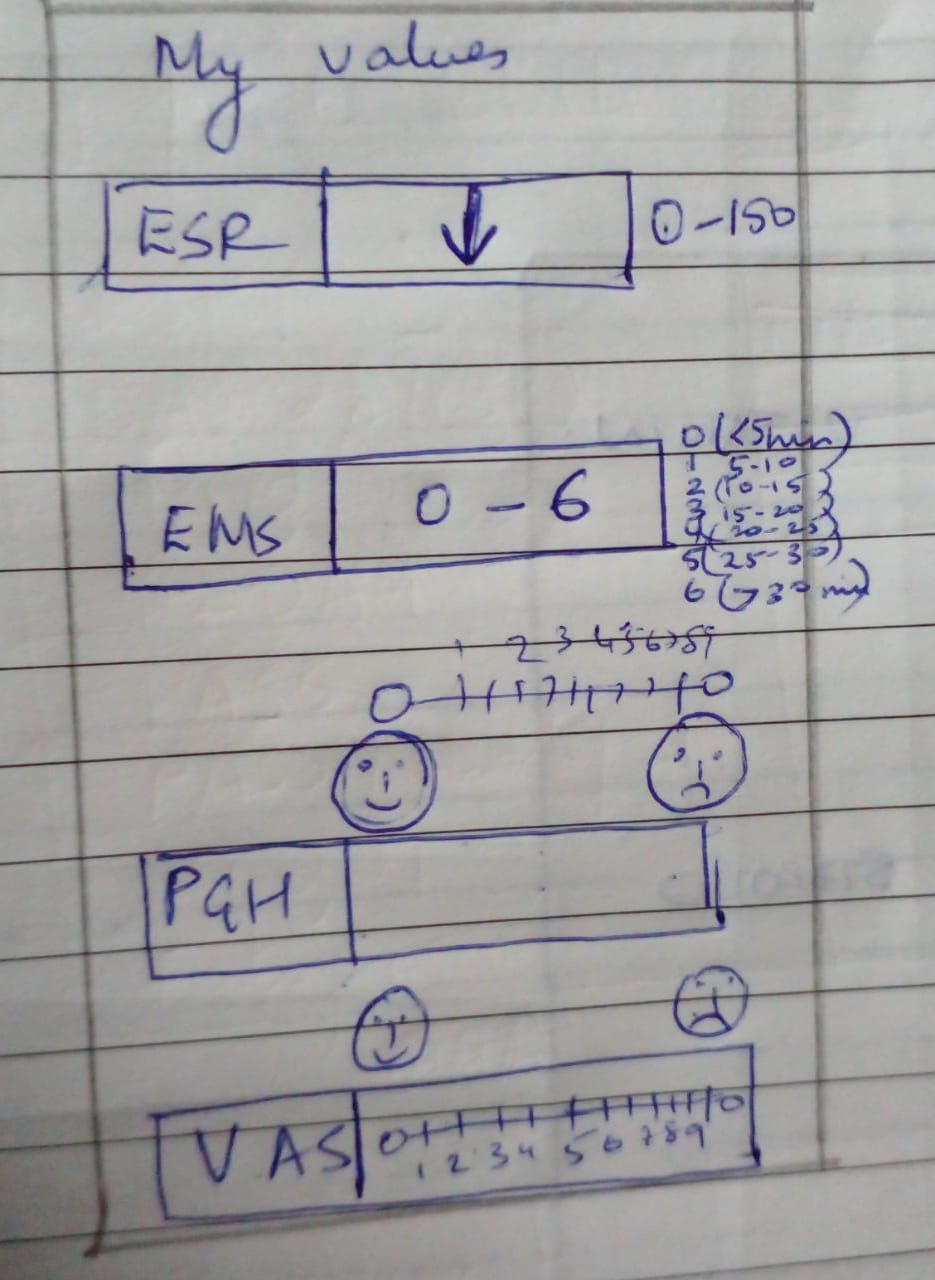 My values
ESR ↓ 0-150
0 (<5min)
1 5-10
2 (10-15)
EMS 0 - 6
3 15-20)
4 (20-25)
5 (25-30)
6 (>30 min)
1 2 3 4 5 6 7 8 9
0 10
PGH
VAS 0 1 2 3 4 5 6 7 8 9 10